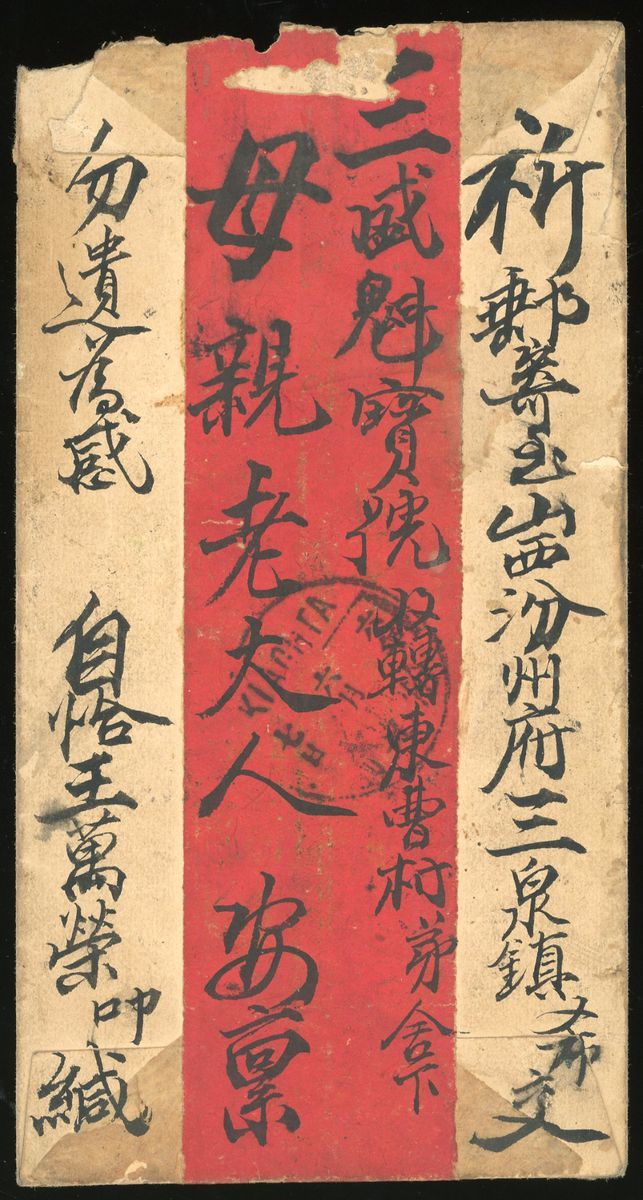 祈郵寄至山西汾州府三泉鎮希交
三盛魁寶號收轉東曹村弟舍下
母親老大人安稟
勿遺為感 自恰王萬榮叩緘
KIACHTA
六月
七日